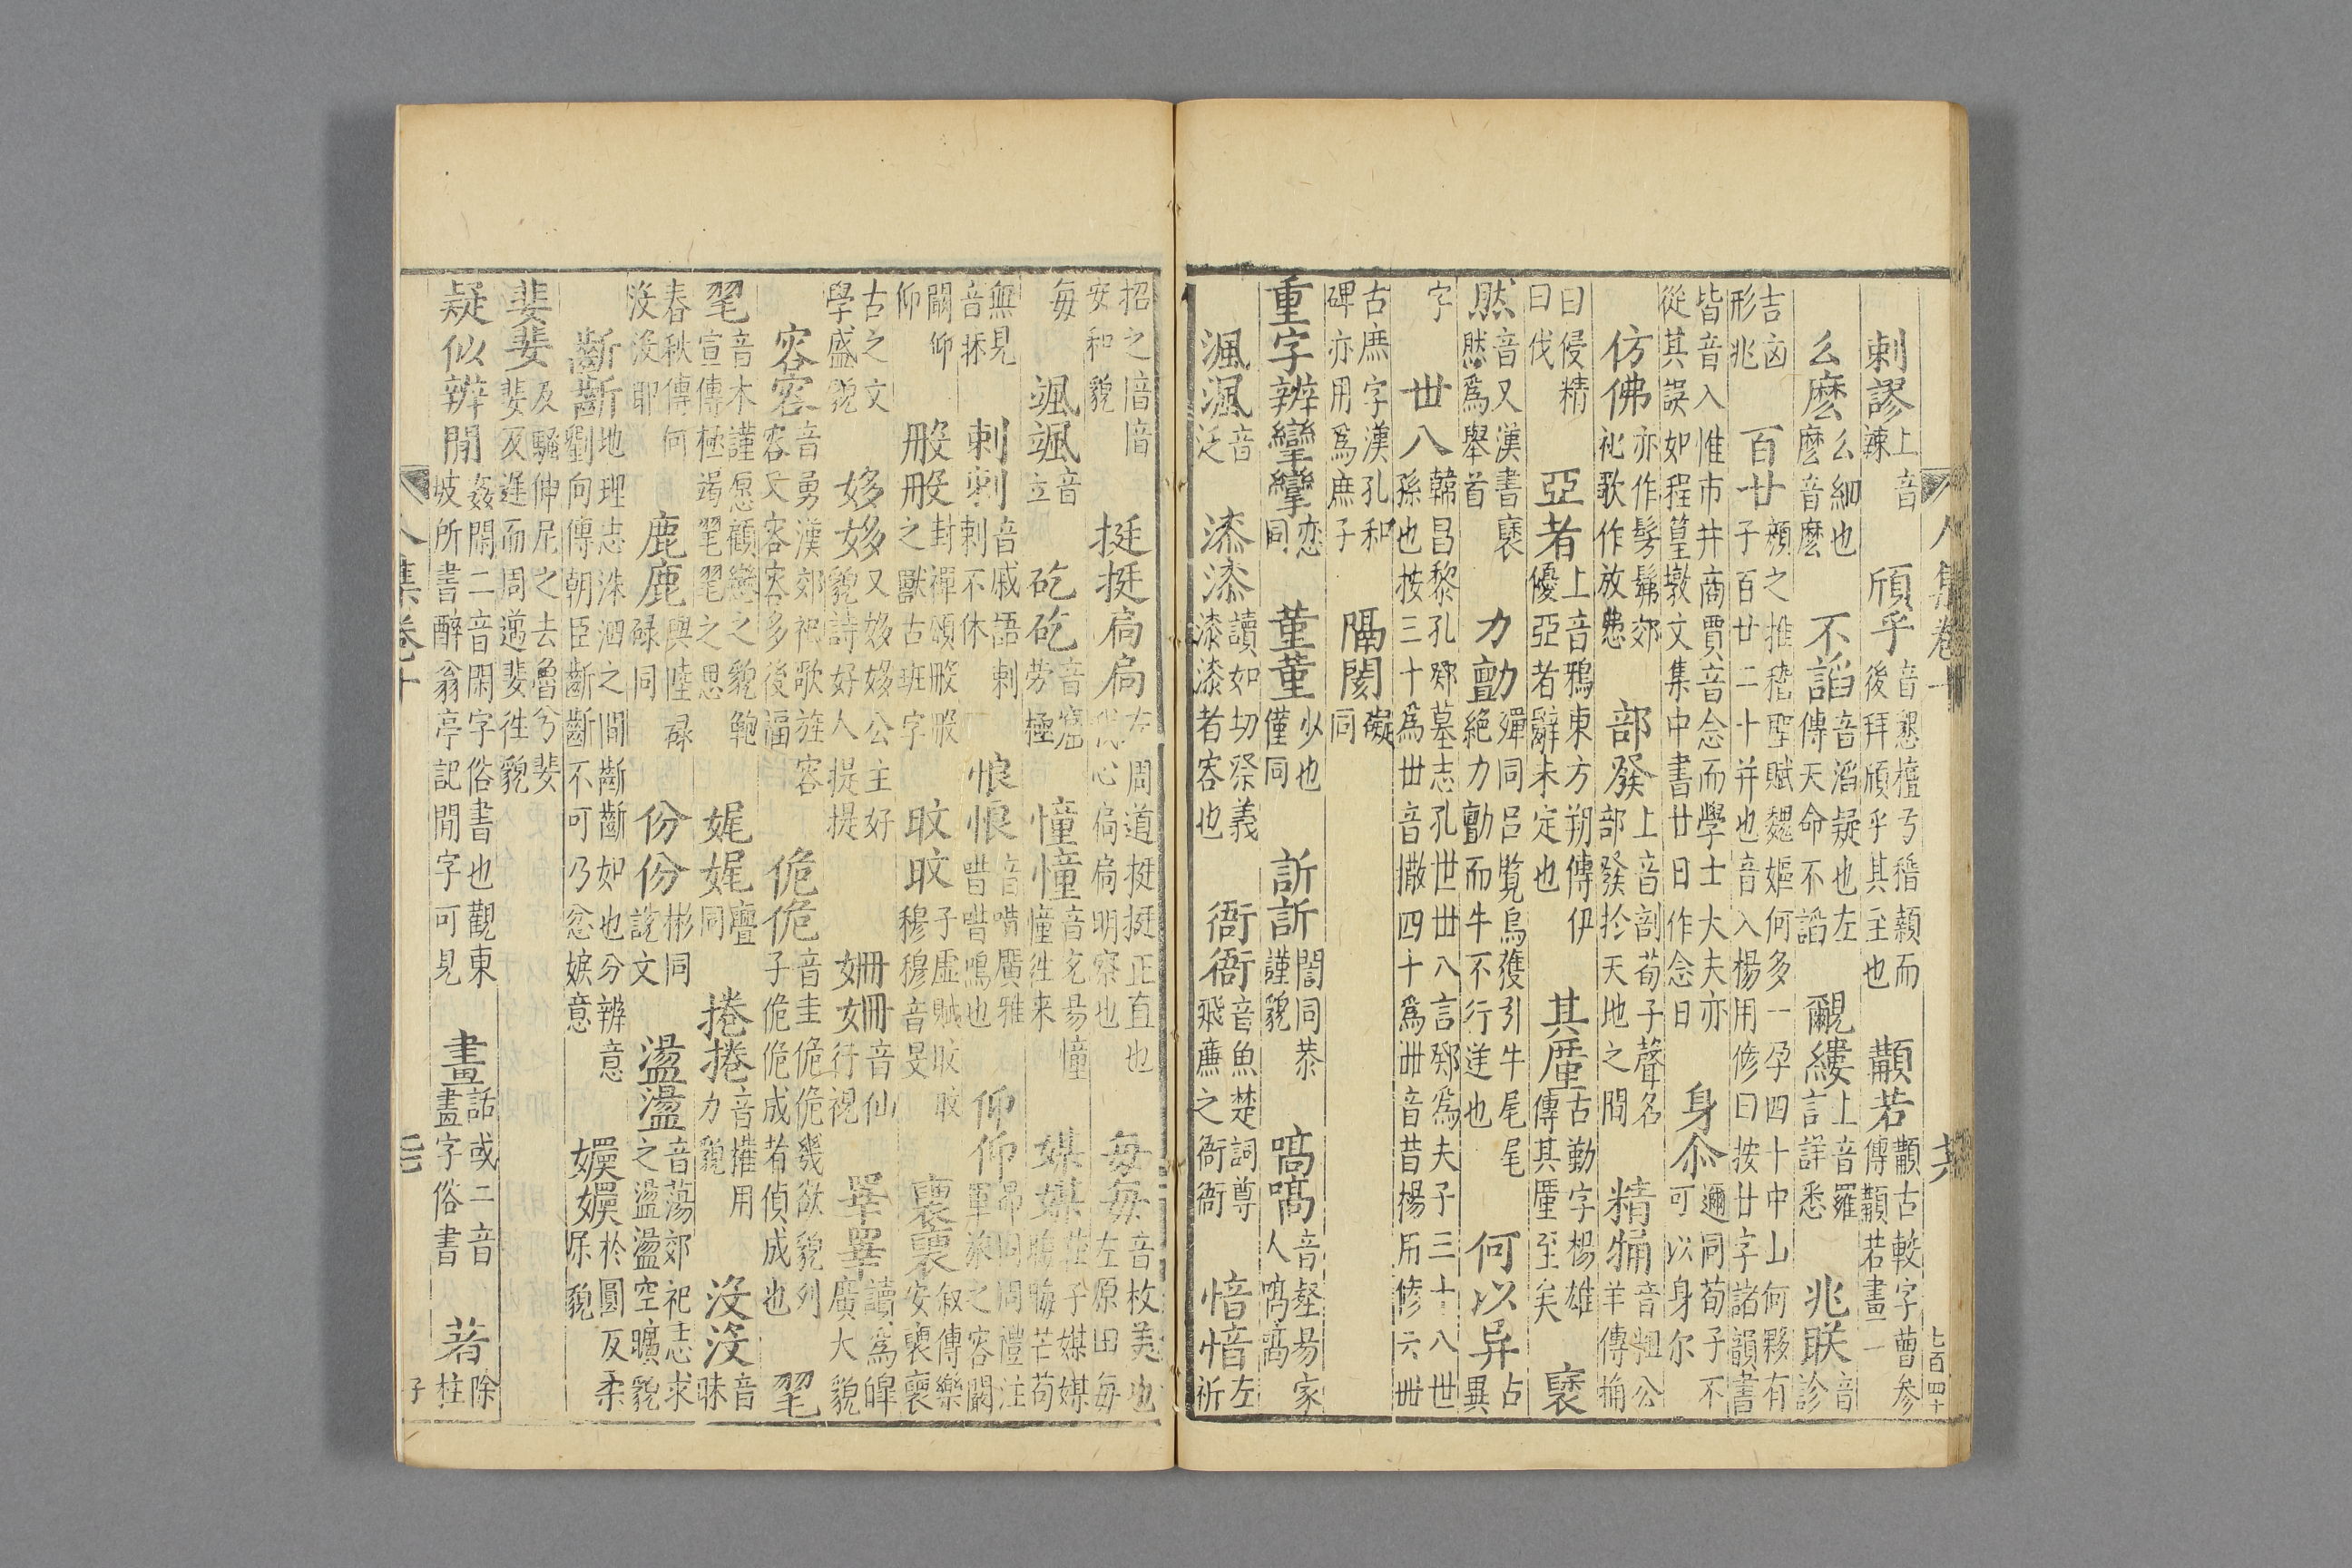 剌謬上音辣 頎乎音懇檀弓稽顙而後拜頎乎其至也 顜若顜古較字曹參傳顜若畫一
么麽么細也麽音麽 不謟音滔疑也左傳天命不謟 覼縷上音羅言詳悉 兆眹音診
吉凶形兆 百廿顏之推稽聖賦魏嫗何多一孕四十中山何夥有子百廿二十并也音入楊用修曰按廿字諸韻書
皆音入惟市井商賈音念而學士大夫亦從其誤如程篁墩文集中書廿日作念日 身尒邇同荀子不可以身尔
仿佛亦作髣髴郊祀歌作放患 部發上音剖荀子聲名部發於天地之間 精觕音粗公羊傳觕
曰侵精曰伐 亞者上音鴉東方朔傳伊優亞者辭未定也 其廑古勤字楊雄傳其廑至矣 褎
然音又漢書褎然爲舉首 力勯殫同呂覽烏獲引牛尾尾絕力勯而牛不行逆也 何以异占異
字 丗八韓昌黎孔鄈墓志孔世丗八言鄈爲夫子三十八世孫也按三十爲丗音撒四十爲卌音昔楊用修六卌
古庶字漢孔和碑亦用爲庶子 隔閡礙同
重字辨孿孿恋同 菫菫少也僅同 訢訢誾同恭謹貌 嗃嗃音壑易家人嗃嗃
渢渢音泛 漆漆讀如切祭義漆漆者容也 衙衙音魚楚詞導飛廉之衙衙 愔愔左祈
招之愔愔安和貌 挺挺扃扃左周道挺挺正直也我心扃扃明察也 每每音枚美也左原田每每
每 颯颯音立 矻矻音窟勞極 憧憧音充易憧憧往来 媒媒莊子媒媒晦晦芒荀
無見音抹 刺刺音戚語刺刺不休 悢悢音唶廣雅唶唶鳴也 仰仰昂同周禮注軍旅之容闞
闞仰仰 般般封禪頌般般之獸古班字 旼旼子虛賦旼旼穆穆音旻 褭褭叙傳樂安褭褭
古之文學盛貌 姼姼又姼姼公主好貌詩好人提提 姍姍音仙女行視 睪睪讀爲皥廣大貌
容容音勇漢郊祀歌旌容容又容容多後福 佹佹音圭佹佹幾欲貌列子佹佹成者偵成也 毣
毣音木謹愿顧戀之貌鮑宣傳極竭毣毣之思 娓娓亹同 捲捲音權用力貌 沒沒音昧
春秋傳何沒沒耶 鹿鹿與陸碌碌同 份份彬同說文 盪盪音蕩郊祀志求之盪盪空曠貌
斷斷地理志洙泗之間斷斷如也分辨意劉向傳朝臣斷斷不可乃忿嫉意 嬽嬽於圓反柔孱貌
婓婓及騷仲尼之去魯兮婓婓反遅而周邁婓往貌
疑似辨閒姦閑二音閑字俗書也觀東坡所書醉翁亭記閒字可見 畫話或二音畫字俗書 著除柱